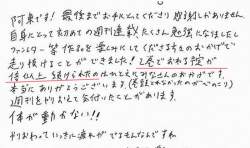 阿東です! 最後までお付んでくださり 感謝しかありません
自身にとって初めての週刊連載 たくさん勉強になりましたし
ファンレター 等 作品を楽しみにしてくださる方々のおかげで
走り抜けることができました! 2巻でおわる筈が
倍以上続けられたのはそれこそみなさんのおかげです。
本当にありがとうございます (巻数とれなかったのがへこり)
週刊をおわして気付いたことがあります。
体が動かない!!
やりおわって いっきに疲れが でるもんなんですね